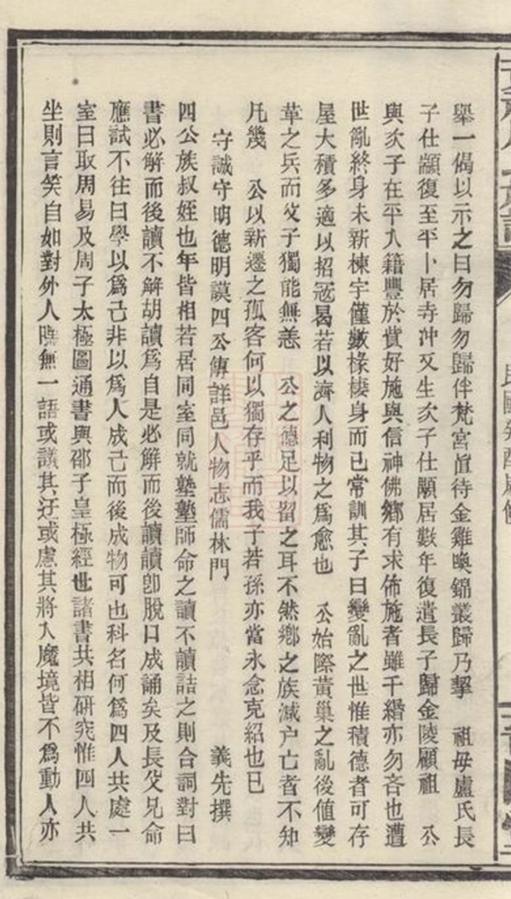 舉一偈以示之曰勿歸勿歸伴梵宮直待金雞喚錦叢歸乃挈　祖母盧氏長
子仕顯復至平卜居寺冲又生次子仕顒居數年復遣長子歸金陵顧祖　公
與次子在平入籍豐於貲好施與信神佛鄉有求佈施者雖千緡亦勿吝也遭
世亂終身未新棟宇僅數椽棲身而已常訓其子曰變亂之世惟積德者可存
屋大積多適以招寇曷若以濟人利物之為愈也　公始際黃巢之亂後值變
革之兵而父子獨能無恙　公之德足以留之耳不然鄉之族滅户亡者不知
凡幾　公以新遷之孤客何以獨存乎而我子若孫亦當永念克紹也已
守誠守明德明謨四公傳詳邑人物志儒林門　義先撰
四公族叔姪也年皆相若居同室同就塾塾師命之讀不讀詰之則合詞對曰
書必解而後讀不解胡讀為自是必解而後讀讀卽脫口成誦矣及長父兄命
應試不往曰學以為己非以為人成己而後成物可也科名何為四人共處一
室日取周易及周子太極圖通書與邵子皇極經世諸書共相研究惟四人共
坐則言笑自如對外人嘿無一語或議其迂或慮其將入魔境皆不為動人亦